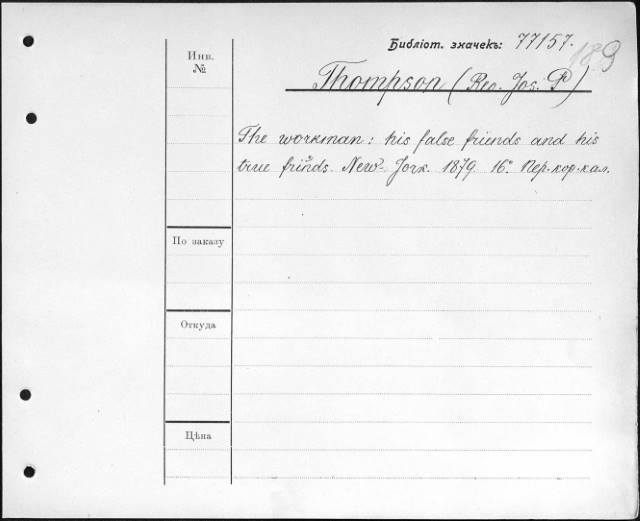 Библіот. значекъ: 77157.
Инв.
№
Thompson (Rev. Jos. P)
The workman: his false friends and his
true frinds. New-Jork. 1879. 16°. Пер.кор.кал.
По заказу
Откуда
Цѣна